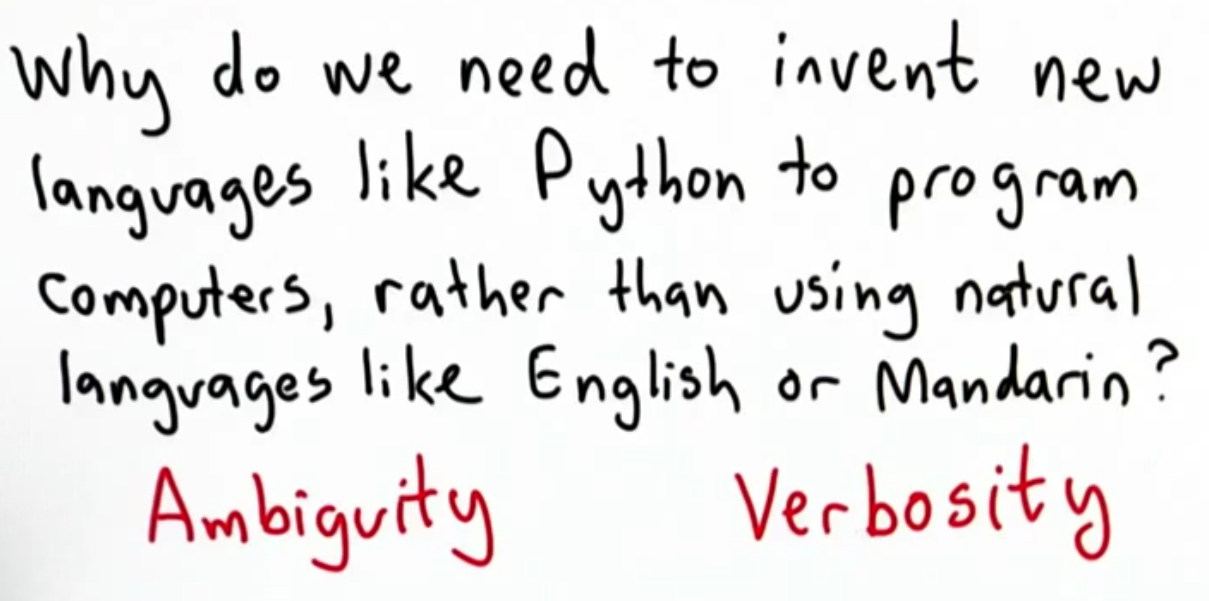 Why do we need to invent new
languages like Python to program
computers, rather than using natural
languages like English or Mandarin?
Ambiguity Verbosity